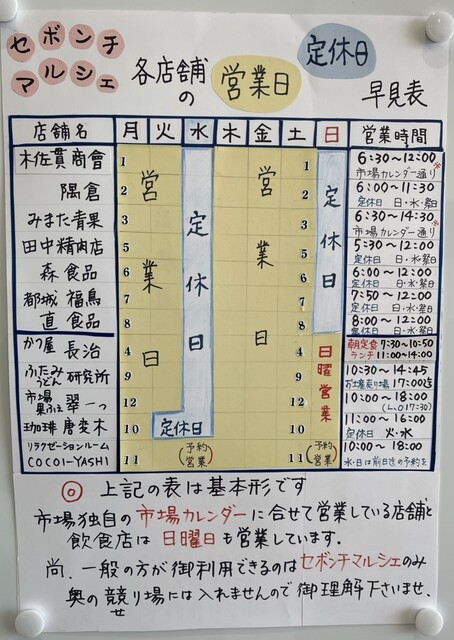 セボンチ
マルシェ
各店舗
の
営業日
定休日
早見表
店舗名 月 火 水 木 金 土 日 営業時間
木佐貫商會 1 1 6:30〜12:00
市場カレンダー通り
隅倉 2 2 6:00〜11:30
定休日 日・水・祭日
みまた青果 3 3 6:30〜14:30
市場カレンダー通り
田中精肉店 4 4 5:30〜12:00
定休日 日・水・祭日
森食品 5 5 6:00〜12:00
定休日 日・水・祭日
都城 福鳥 6 6 7:50〜12:00
定休日 日・水・祭日
直 食品 7 7 8:00〜12:00
定休日 日・水・祭日
8 8
営業日
定休日
営業日
定休日
かつ屋 長治 4 4 朝定食 7:30〜10:50
ランチ 11:00〜14:00
ふたみうどん 研究所 9 9 10:30〜14:45
お土産売り場 17:00迄
市場 翠一っ 12 12 10:00〜18:00
(L.O 17:30)
珈琲 唐変木 10 定休日 10 11:00〜16:00
定休日 火・水
日曜営業
リラクゼーションルーム
COCOI-YASHI 11 (予約営業) 11 (予約営業) 10:00〜18:00
水・日は前日迄の予約を
◎ 上記の表は基本形です
市場独自の市場カレンダーに合せて営業している店舗と
飲食店は 日曜日も営業しています。
尚、一般の方が御利用できるのはセボンチマルシェのみ
奥の競り場には入れませんので御理解下さいませ、
せ